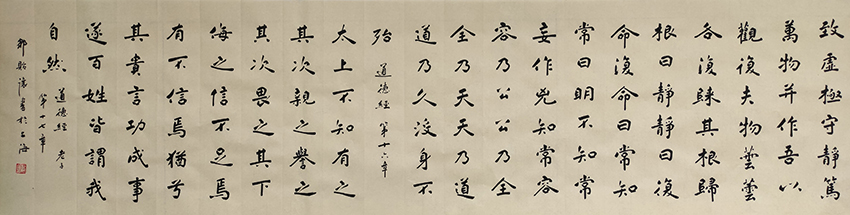 致虛極守靜篤
萬物并作吾以
觀復夫物蕓蕓
各復歸其根歸
根曰靜靜曰復
命復命曰常知
常曰明不知常
妄作兇知常容
容乃公公乃全
全乃天天乃道
道乃久沒身不
殆
道德經
第十六章
太上不知有之
其次親之譽之
其次畏之其下
侮之信不足焉
有不信焉猶兮
其貴言功成事
遂百姓皆謂我
自然
道德經 老子
第十七章
書於上海